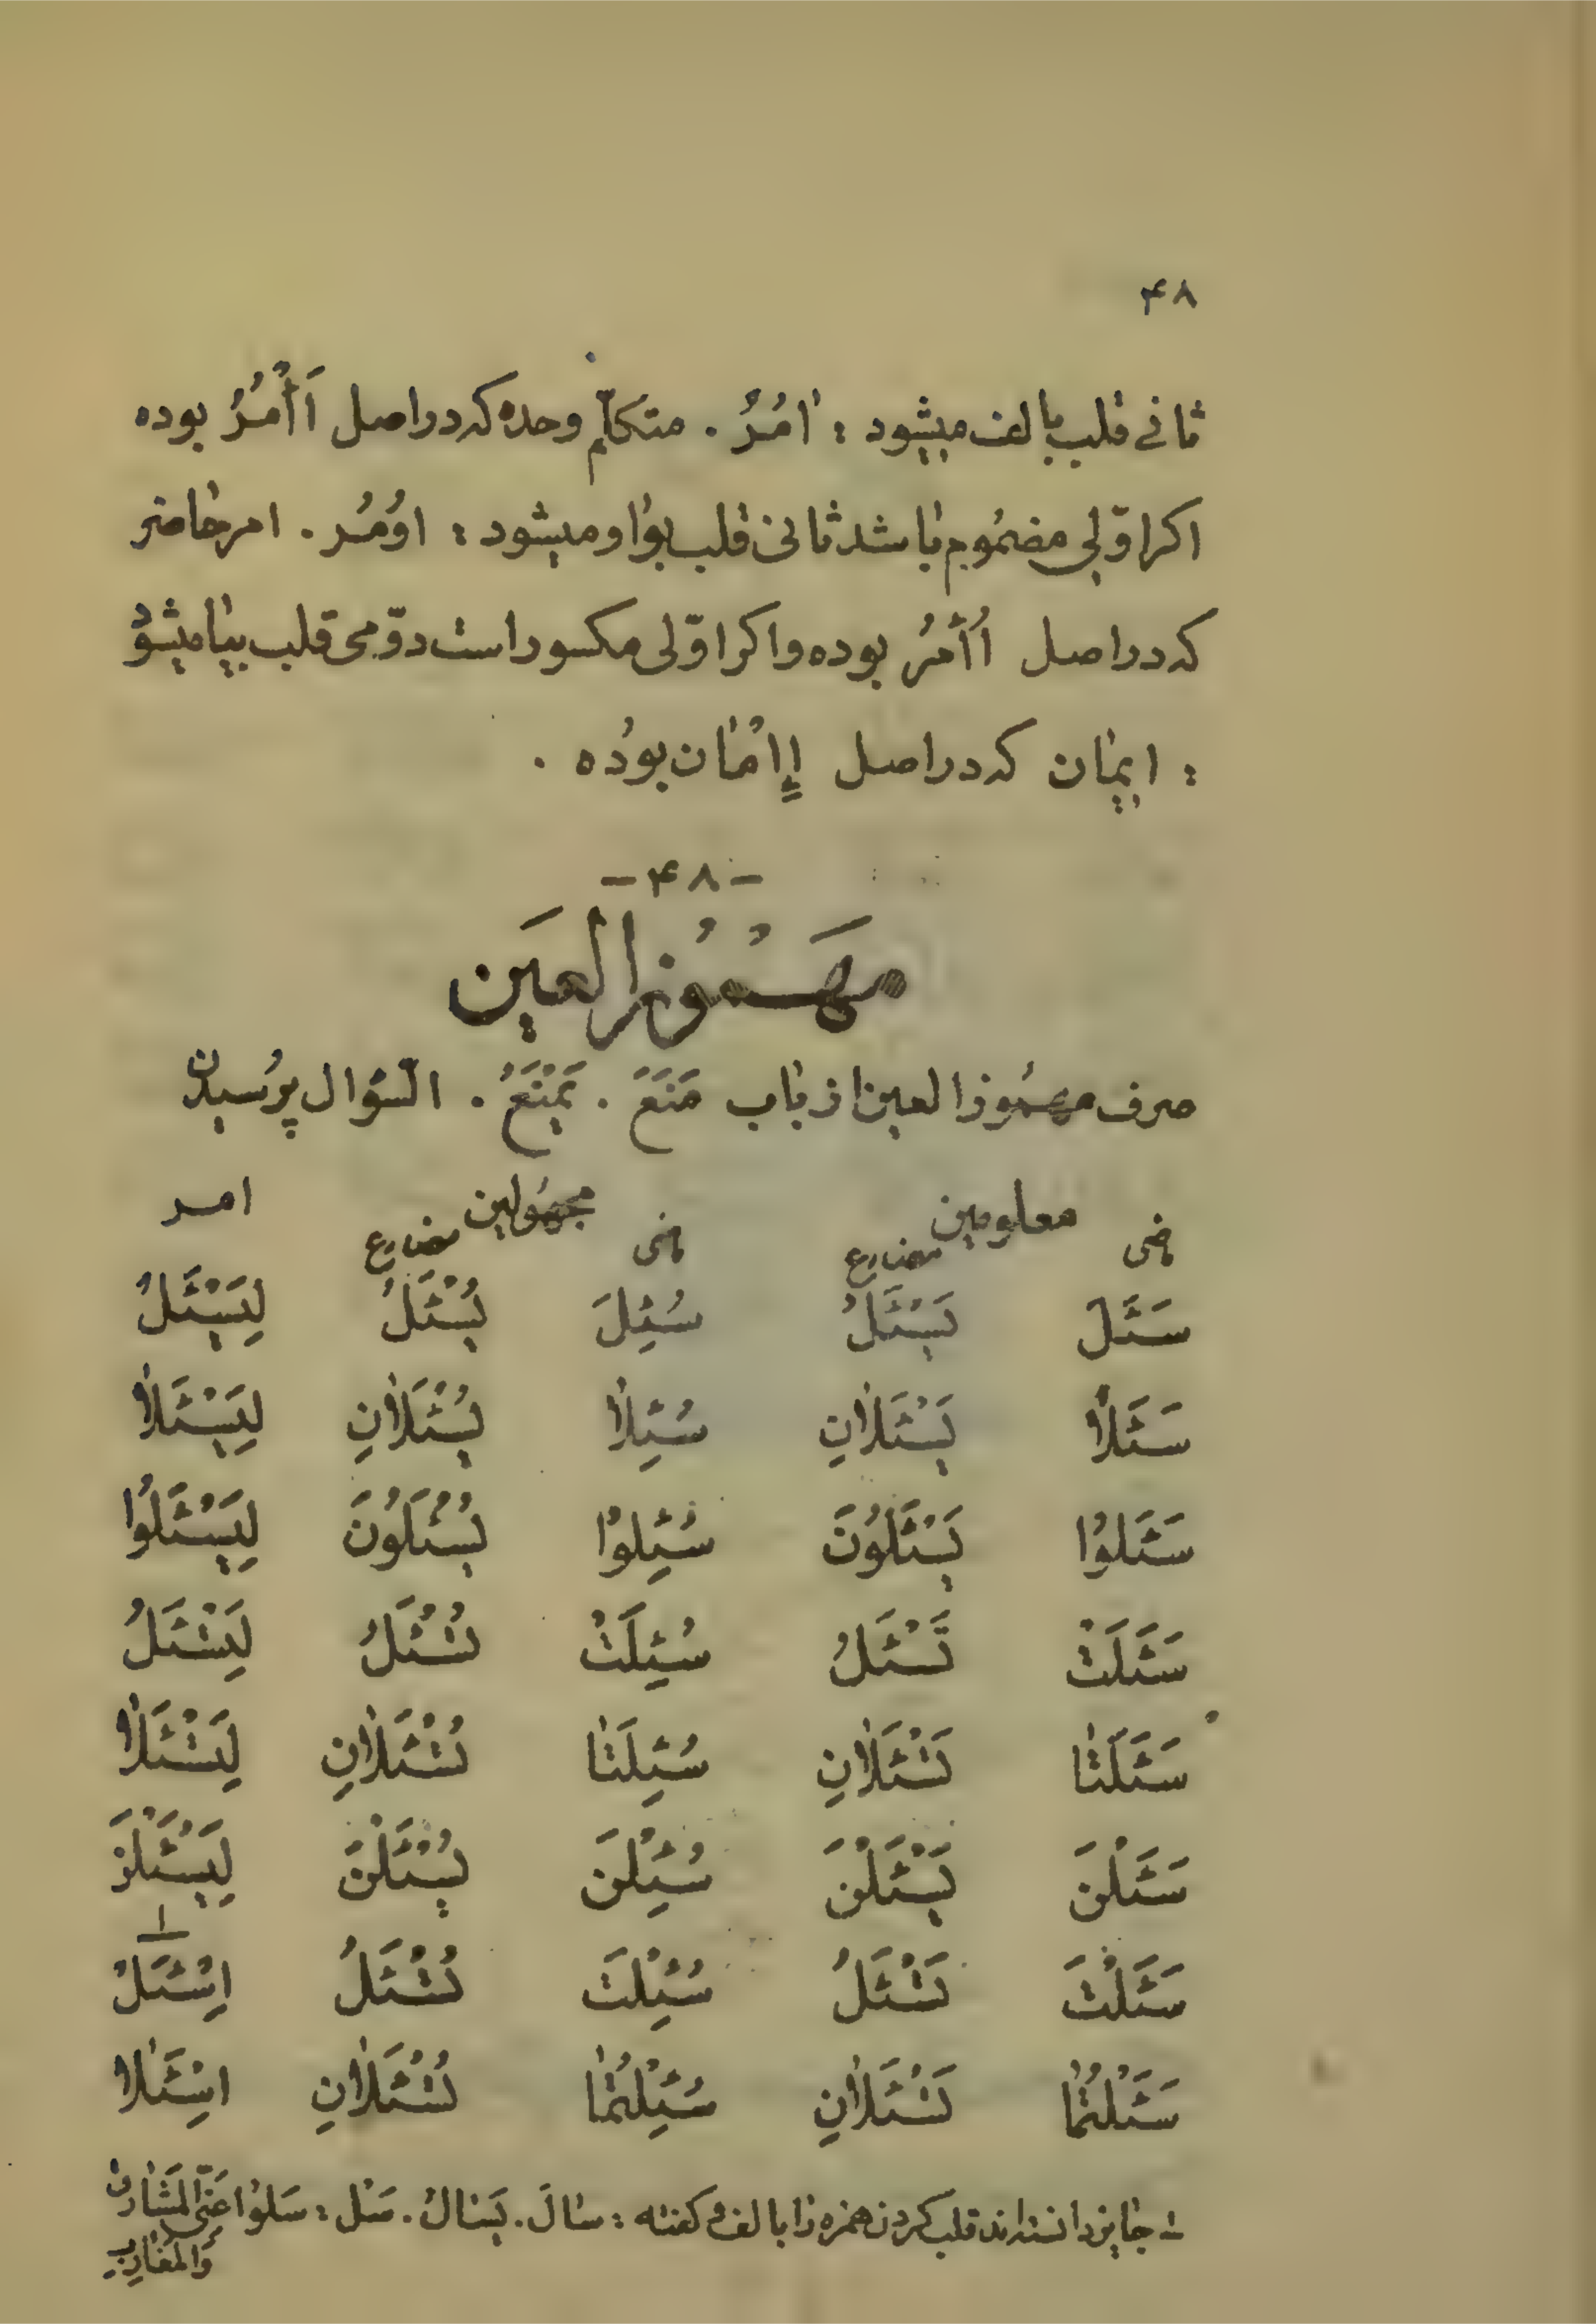 ۴۸
ثانی قلب بالف میشود : اٰمُرُ . متکلّم وحده که دراصل اَأْمُرُ بوده
اکر اوّلی مضمُوم باشد ثانی قلب بواو میشود : اوُمُر . امر حاضر
که دراصل اُأْمُرْ بوده و اکر اوّلی مکسور است دوّمی قلب بیا میشود
: ایمٰان که دراصل إِاْمٰان بوُده .
-۴۸-
مَهْمُوُز العَین
صرف مهمُوز العین از باب مَنَعَ . یَمْنَعُ . السّؤال پرُسیدن
معلومین مجهُولین امر
ماضی مضارع ماضی مضارع
سَئَلَ یَسْئَلُ سُئِلَ یُسْئَلُ لِیَسْئَلْ
سَئَلاٰ یَسْئَلاٰنِ سُئِلاٰ یُسْئَلاٰنِ لِیَسْئَلاٰ
سَئَلوُا یَسْئَلوُنَ سُئِلوُا یُسْئَلوُنَ لِیَسْئَلوُا
سَئَلَتْ تَسْئَلُ سُئِلَتْ تُسْئَلُ لِتَسْئَلْ
سَئَلَتٰا تَسْئَلاٰنِ سُئِلَتٰا تُسْئَلاٰنِ لِتَسْئَلاٰ
سَئَلْنَ یَسْئَلْنَ سُئِلْنَ یُسْئَلْنَ لِیَسْئَلْنَ
سَئَلْتَ تَسْئَلُ سُئِلْتَ تُسْئَلُ اِسْئَلْ ۱
سَئَلْتُمٰا تَسْئَلاٰنِ سُئِلْتُمٰا تُسْئَلاٰنِ اِسْئَلاٰ
۱- جایز دانسته‌اند قلب کردن همزه را بالف و کفته : سٰالَ . یَسٰالُ . سَل : سَلوُا عَنّی الْمَشٰارِقَ
وَالْمَغٰارِبَ